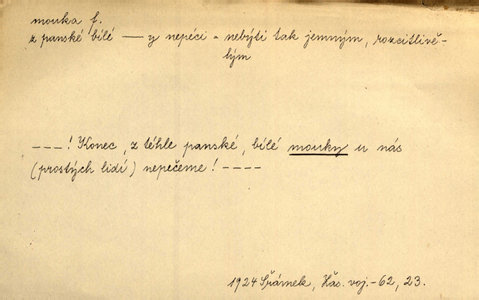 mouka f.
z panské bílé — y nepéci - nebýti tak jemným, rozcitlivě-
lým
---! Konec, z téhle panské, bílé mouky u nás
(prostých lidí) nepečeme! ----
1924 Šrámek, Žás. voj.-62, 23.